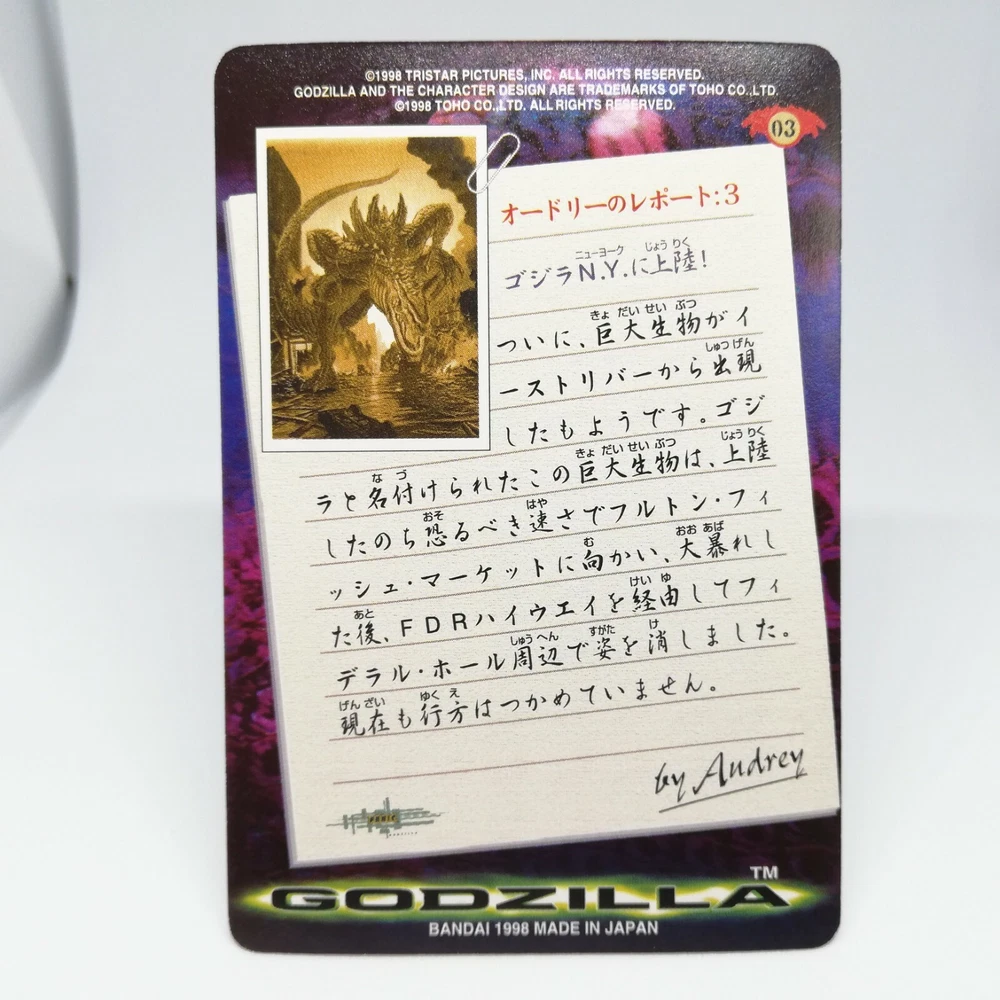 ©1998 TRISTAR PICTURES, INC. ALL RIGHTS RESERVED.
GODZILLA AND THE CHARACTER DESIGN ARE TRADEMARKS OF TOHO CO.,LTD.
©1998 TOHO CO.,LTD. ALL RIGHTS RESERVED.
03
オードリーのレポート:3
ニューヨーク じょうりく
ゴジラN.Y.に上陸!
きょ だい せい ぶつ
ついに、巨大生物がイ
しゅつ げん
ーストリバーから出現
したもようです。ゴジ
な づ きょ だい せい ぶつ じょう りく
ラと名付けられたこの巨大生物は、上陸
おそ はや
したのち恐るべき速さでフルトン・フィ
む おお あば
ッシュ・マーケットに向かい、大暴れし
あと けい ゆ
た後、FDRハイウエイを経由してフィ
しゅう へん すがた け
デラル・ホール周辺で姿を消しました。
げん ざい ゆく え
現在も行方はつかめていません。
by Audrey
GODZILLA
TM
BANDAI 1998 MADE IN JAPAN